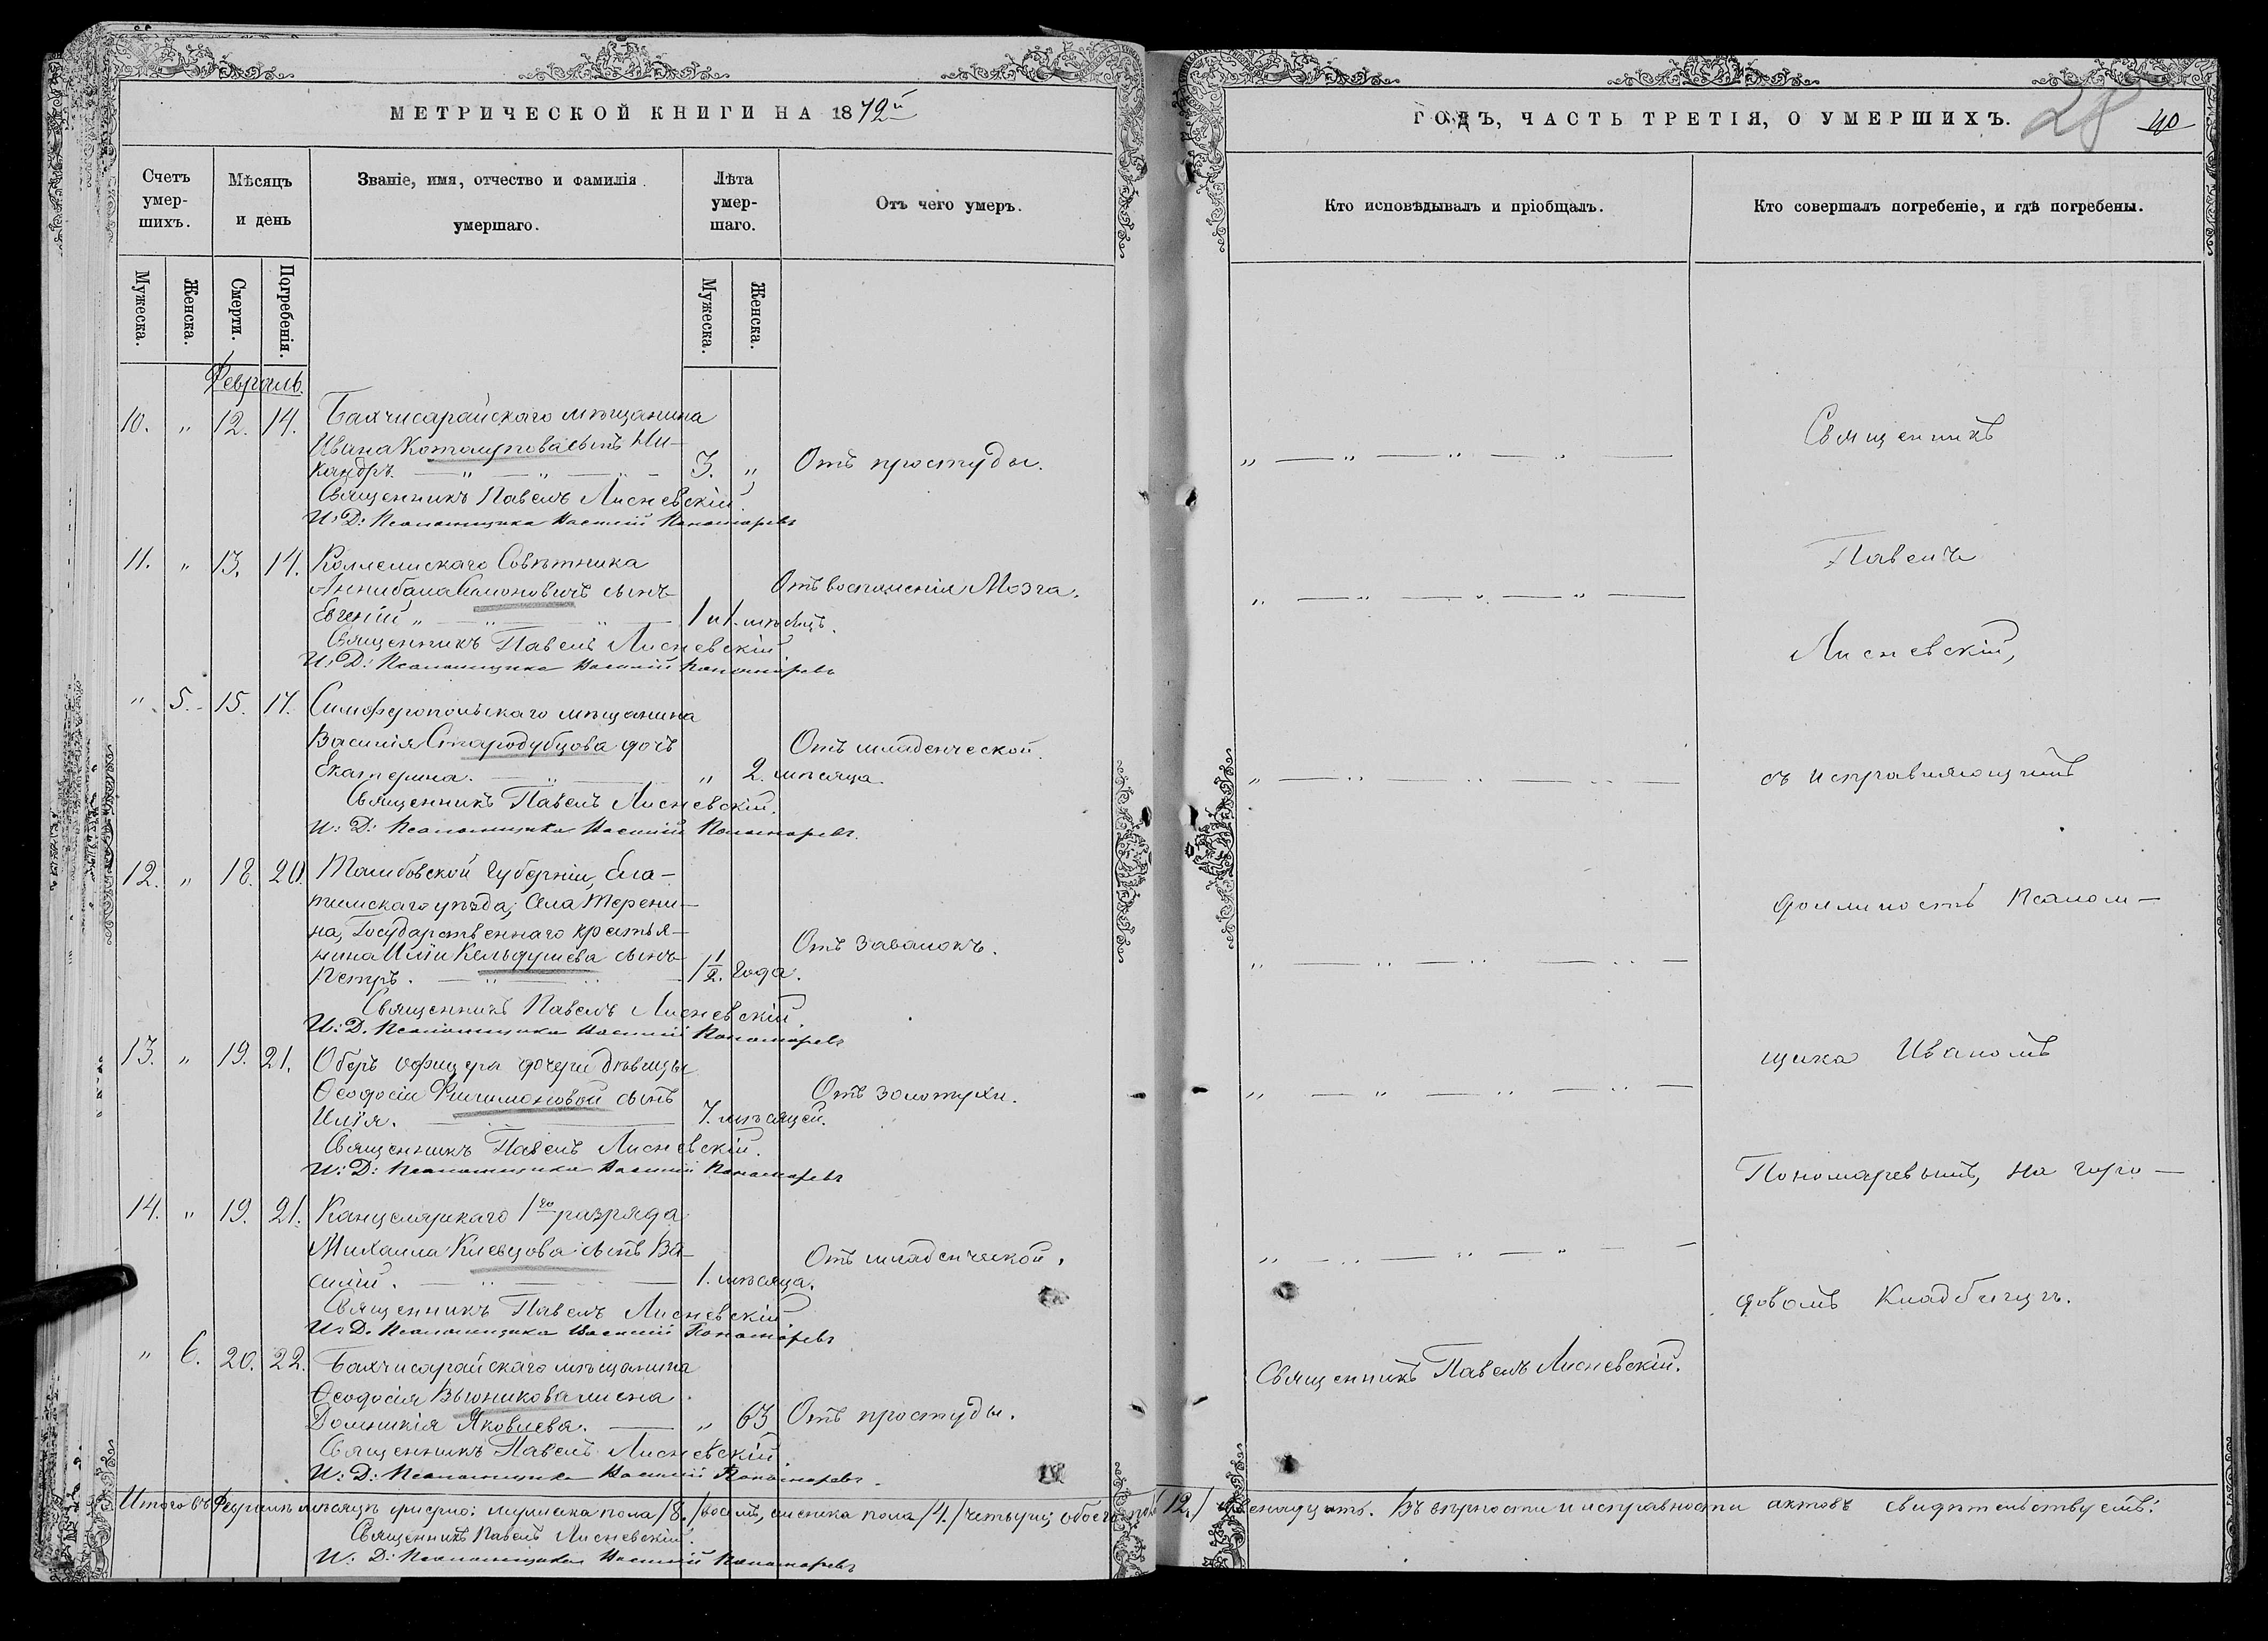 МЕТРИЧЕСКОЙ КНИГИ НА 1872й
ГОДЪ, ЧАСТЬ ТРЕТІЯ, О УМЕРШИХЪ.
28
40
Счетъ умер-шихъ.
Мѣсяцъ и день
Званіе, имя, отчество и фамилія умершаго.
Лѣта умер-шаго.
Отъ чего умеръ.
Кто исповѣдывалъ и пріобщалъ.
Кто совершалъ погребеніе, и гдѣ погребены.
Мужеска.
Женска.
Смерти.
Погребенія.
Мужеска.
Женска.
Февраль.
10. " 12. 14. Бахчисарайскаго мѣщанина
Ивана сынъ Ни-
кандръ. 3. " Отъ простуды.
Священникъ Павелъ Лисневскій.
И: Д: Псаломщика Пономаревъ
11. " 13. 14. Коллежскаго Совѣтника
Аннибала сынъ Отъ воспаленія Мозга.
Евгеній " 1 и 1. мѣсяцъ.
Священникъ Павелъ Лисневскій
И: Д: Псаломщика Пономаревъ
" 5. 15. 17. Симферопольскаго мѣщанина
Василія Стародубцова дочь Отъ младенческой.
Екатерина. " 2. мѣсяца.
Священникъ Павелъ Лисневскій.
И: Д: Псаломщика Пономаревъ.
12. " 18. 20. Тамбовской Губерніи, Ела-
томскаго уѣзда, Села Терени-
на, Государственнаго крестья-
нина Иліи Кельдушева сынъ Отъ завалокъ.
Петръ. 1 1/2. года.
Священникъ Павелъ Лисневскій.
И: Д. Псаломщика Пономаревъ
13. " 19. 21. Оберъ офицера дочери дѣвицы
Ѳеодосіи Филимоновой сынъ Отъ золотухи.
Илія. 7. мѣсяцей.
Священникъ Павелъ Лисневскій.
И: Д: Псаломщика Пономаревъ
14. " 19. 21. Канцелярскаго 1го разряда
Михаила Клевцова сынъ Ва- Отъ младенческой.
силій. 1. мѣсяца.
Священникъ Павелъ Лисневскій
И: Д. Псаломщика Пономаревъ
" 6. 20. 22. Бахчисарайскаго мѣщанина
Ѳеодосія Вьюникова жена
Домникія Яковлева. " 63 Отъ простуды.
Священникъ Павелъ Лисневскій.
И: Д: Псаломщика Пономаревъ.
Священникъ Павелъ Лисневскій.
Священникъ
Павелъ
Лисневскій,
съ исправляющимъ
должность Псалом-
щика Иваномъ
Пономаревымъ, на горо-
довомъ Кладбищѣ.
Итого въ Февралѣ мѣсяцѣ умерло: мужеска пола /8./ восемь, женска пола /4./ четыре, обоего пола /12./ двенадцать. Въ вѣрности и исправности актовъ свидѣтельствуемъ:
Священникъ Павелъ Лисневскій.
И: Д: Псаломщика Пономаревъ